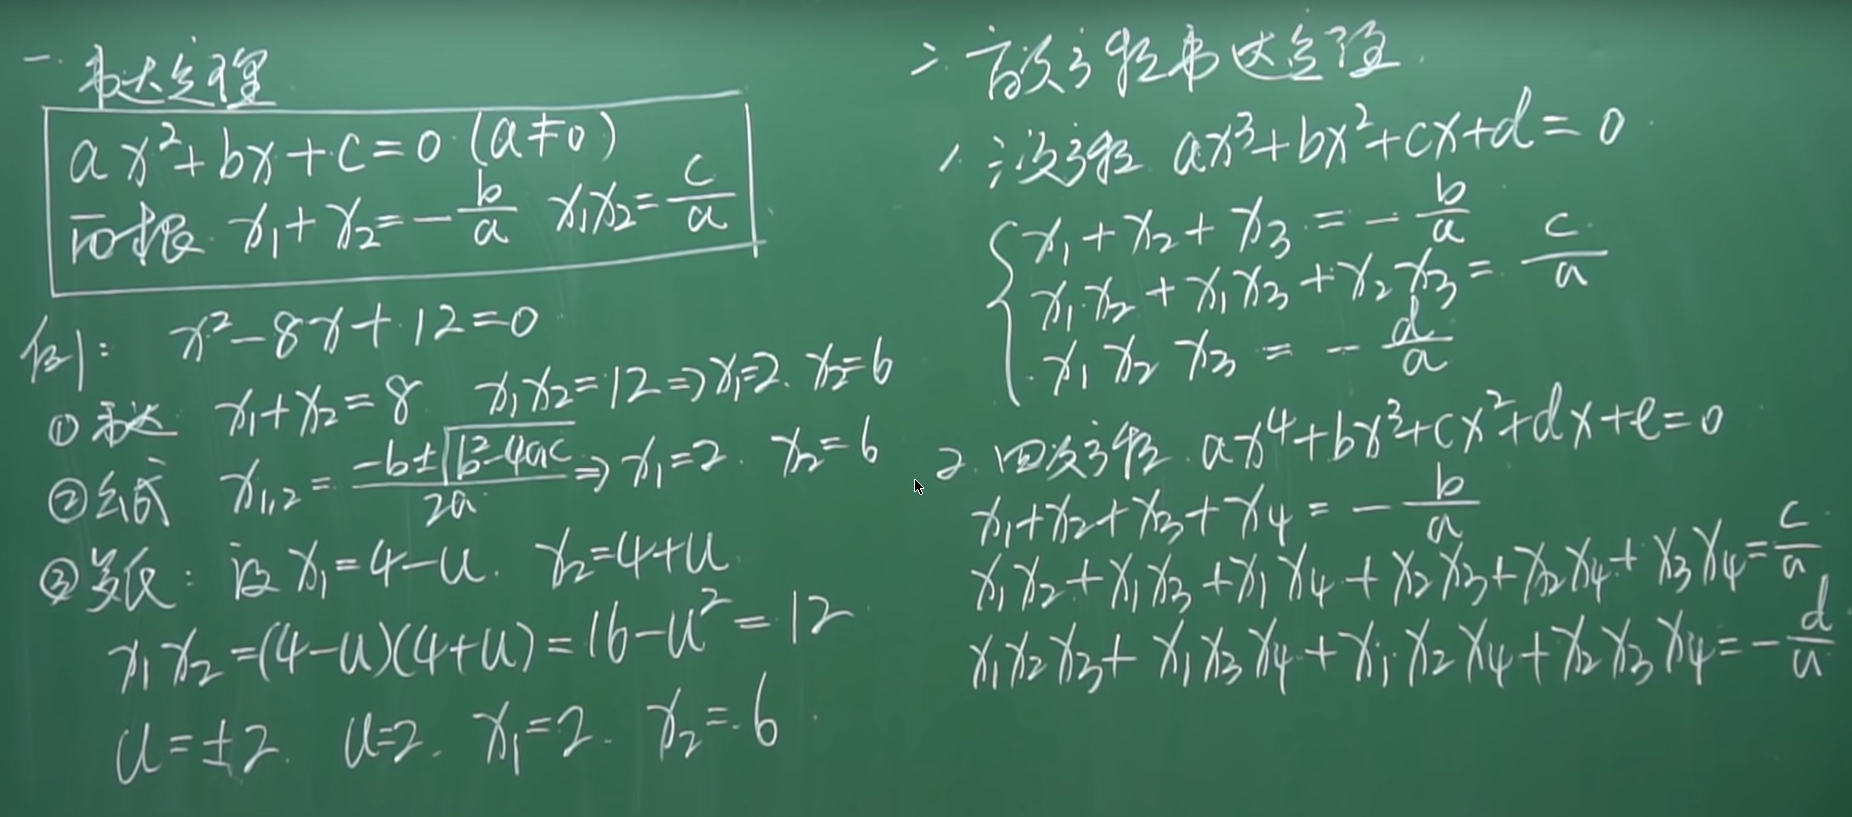 一. 韦达定理
ax²+bx+c=0 (a≠0)
两根 x₁+x₂=-b/a x₁x₂=c/a
例: x²-8x+12=0
①韦达 x₁+x₂=8 x₁x₂=12⇒x₁=2. x₂=6
②公式 x₁,₂=(-b±√(b²-4ac))/2a⇒x₁=2. x₂=6
③罗氏: 设x₁=4-u. x₂=4+u
x₁x₂=(4-u)(4+u)=16-u²=12
u=±2. u=2. x₁=2. x₂=6
二. 高次方程韦达定理
1. 三次方程 ax³+bx²+cx+d=0
x₁+x₂+x₃=-b/a
x₁x₂+x₁x₃+x₂x₃=c/a
x₁x₂x₃=-d/a
2. 四次方程 ax⁴+bx³+cx²+dx+e=0
x₁+x₂+x₃+x₄=-b/a
x₁x₂+x₁x₃+x₁x₄+x₂x₃+x₂x₄+x₃x₄=c/a
x₁x₂x₃+x₁x₃x₄+x₁x₂x₄+x₂x₃x₄=-d/a